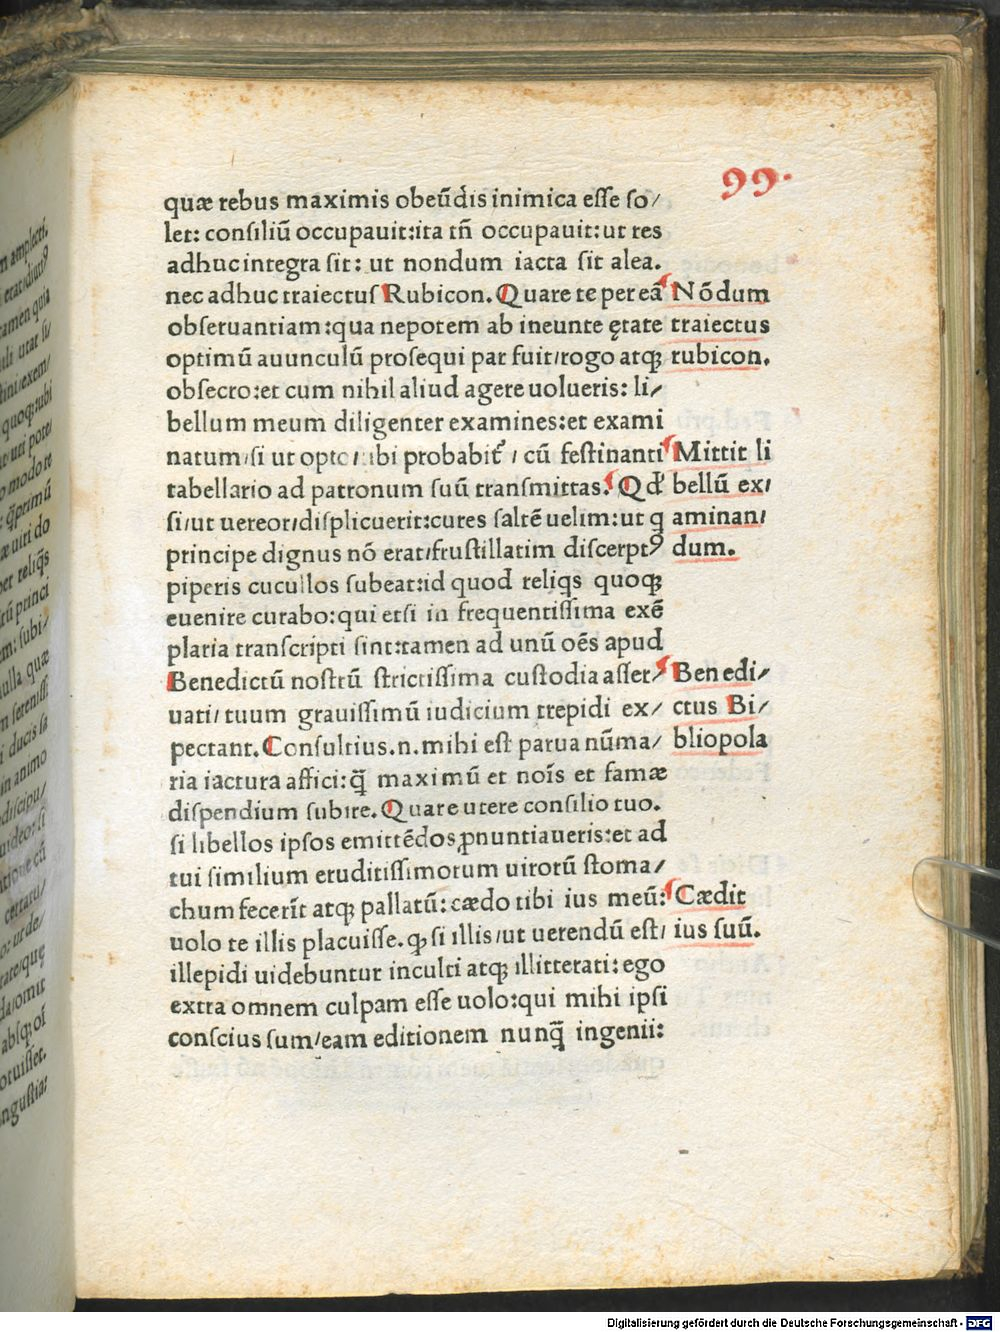 99.
quæ rebus maximis obeūdis inimica esse so/
let: consiliū occupauit:ita tñ occupauit:ut res
adhuc integra sit: ut nondum iacta sit alea.
nec adhuc traiectus Rubicon. Quare te per eā
obseruantiam:qua nepotem ab ineunte ętate
optimū auunculū prosequi par fuit/rogo atqꝫ
obsecro:et cum nihil aliud agere uolueris: li/
bellum meum diligenter examines:et exami
natum/si ut opto tibi probabit᷑ / cū festinanti
tabellario ad patronum suū transmittas. Qd̓
si/ut uereor/displicuerit:cures saltē uelim:ut q
principe dignus nō erat/frustillatim discerptꝰ
piperis cucullos subeat:id quod reliqs quoqꝫ
euenire curabo:qui etsi in frequentissima exē
plaria transcripti sint:tamen ad unū oēs apud
Benedictū nostrū strictissima custodia asser/
uati/tuum grauissimū iudicium trepidi ex/
pectant. Consultius.n.mihi est parua nūma/
ria iactura affici:q̄ maximū et nois̄ et famæ
dispendium subire. Quare utere consilio tuo.
si libellos ipsos emittēdos ꝓnuntiaueris:et ad
tui similium eruditissimorum uirorū stoma/
chum fecerīt atqꝫ pallatū:cædo tibi ius meū:
uolo te illis placuisse. ꝙ si illis/ut uerendū est/
illepidi uidebuntur inculti atqꝫ illitterati: ego
extra omnem culpam esse uolo:qui mihi ipsi
conscius sum/eam editionem nunq̄ ingenii:
Nōdum
traiectus
rubicon.
Mittit li
bellū ex/
aminan/
dum.
Benedi/
ctus Bi/
bliopola
Cædit
ius suū.
Digitalisierung gefördert durch die Deutsche Forschungsgemeinschaft - DFG